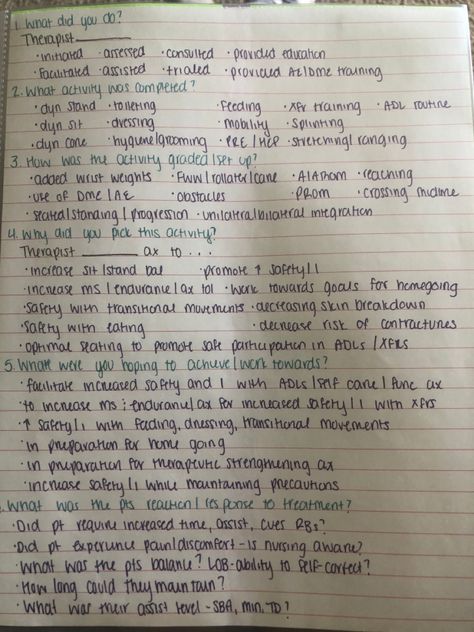 1. What did you do?
Therapist
· initiated · assessed · consulted · provided education
· facilitated · assisted · trialed · provided AE/DME training
2. What activity was completed?
· dyn stand · toileting · feeding · xfr training · ADL routine
· dyn sit · dressing · mobility · splinting
· dyn cone · hygiene/grooming · PRE/HEP · stretching/ranging
3. How was the activity graded/set up?
· added wrist weights · FWW/rollater/cane · A/AAROM · reaching
· use of DME/AE · obstacles · PROM · crossing midline
· seated/standing/progression · unilateral/bilateral integration
4. Why did you pick this activity?
Therapist ax to . . .
· increase sit/stand bal · promote ↑ safety/I
· increase ms/endurance/ax tol · work towards goals for homegoing
· safety with transitional movements · decreasing skin breakdown
· safety with eating · decrease risk of contractures
· optimal seating to promote safe participation in ADLs/XFRs
5. What were you hoping to achieve/work towards?
· facilitate increased safety and I with ADLs/self care/func ax
· to increase ms; endurance/ax for increased safety/I with xfrs
· ↑ safety/I with feeding, dressing, transitional movements
· in preparation for home going
· in preparation for therapeutic strengthening ax
· increase safety/I while maintaining precautions
. What was the pts reaction/response to treatment?
· Did pt require increased time, assist, cues, RBs?
· Did pt experience pain/discomfort - is nursing aware?
· What was the pts balance? LOB - ability to self-correct?
· How long could they maintain?
· What was their assist level - SBA, min, TD?